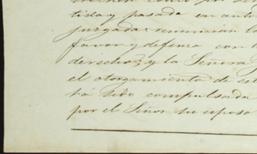 tida y pasada en auto
juzgada: renuncian la
favor y defensa con l
derechos; y la Señora
el otorgamiento de es
ha sido compulsada
por el Señor su esposo